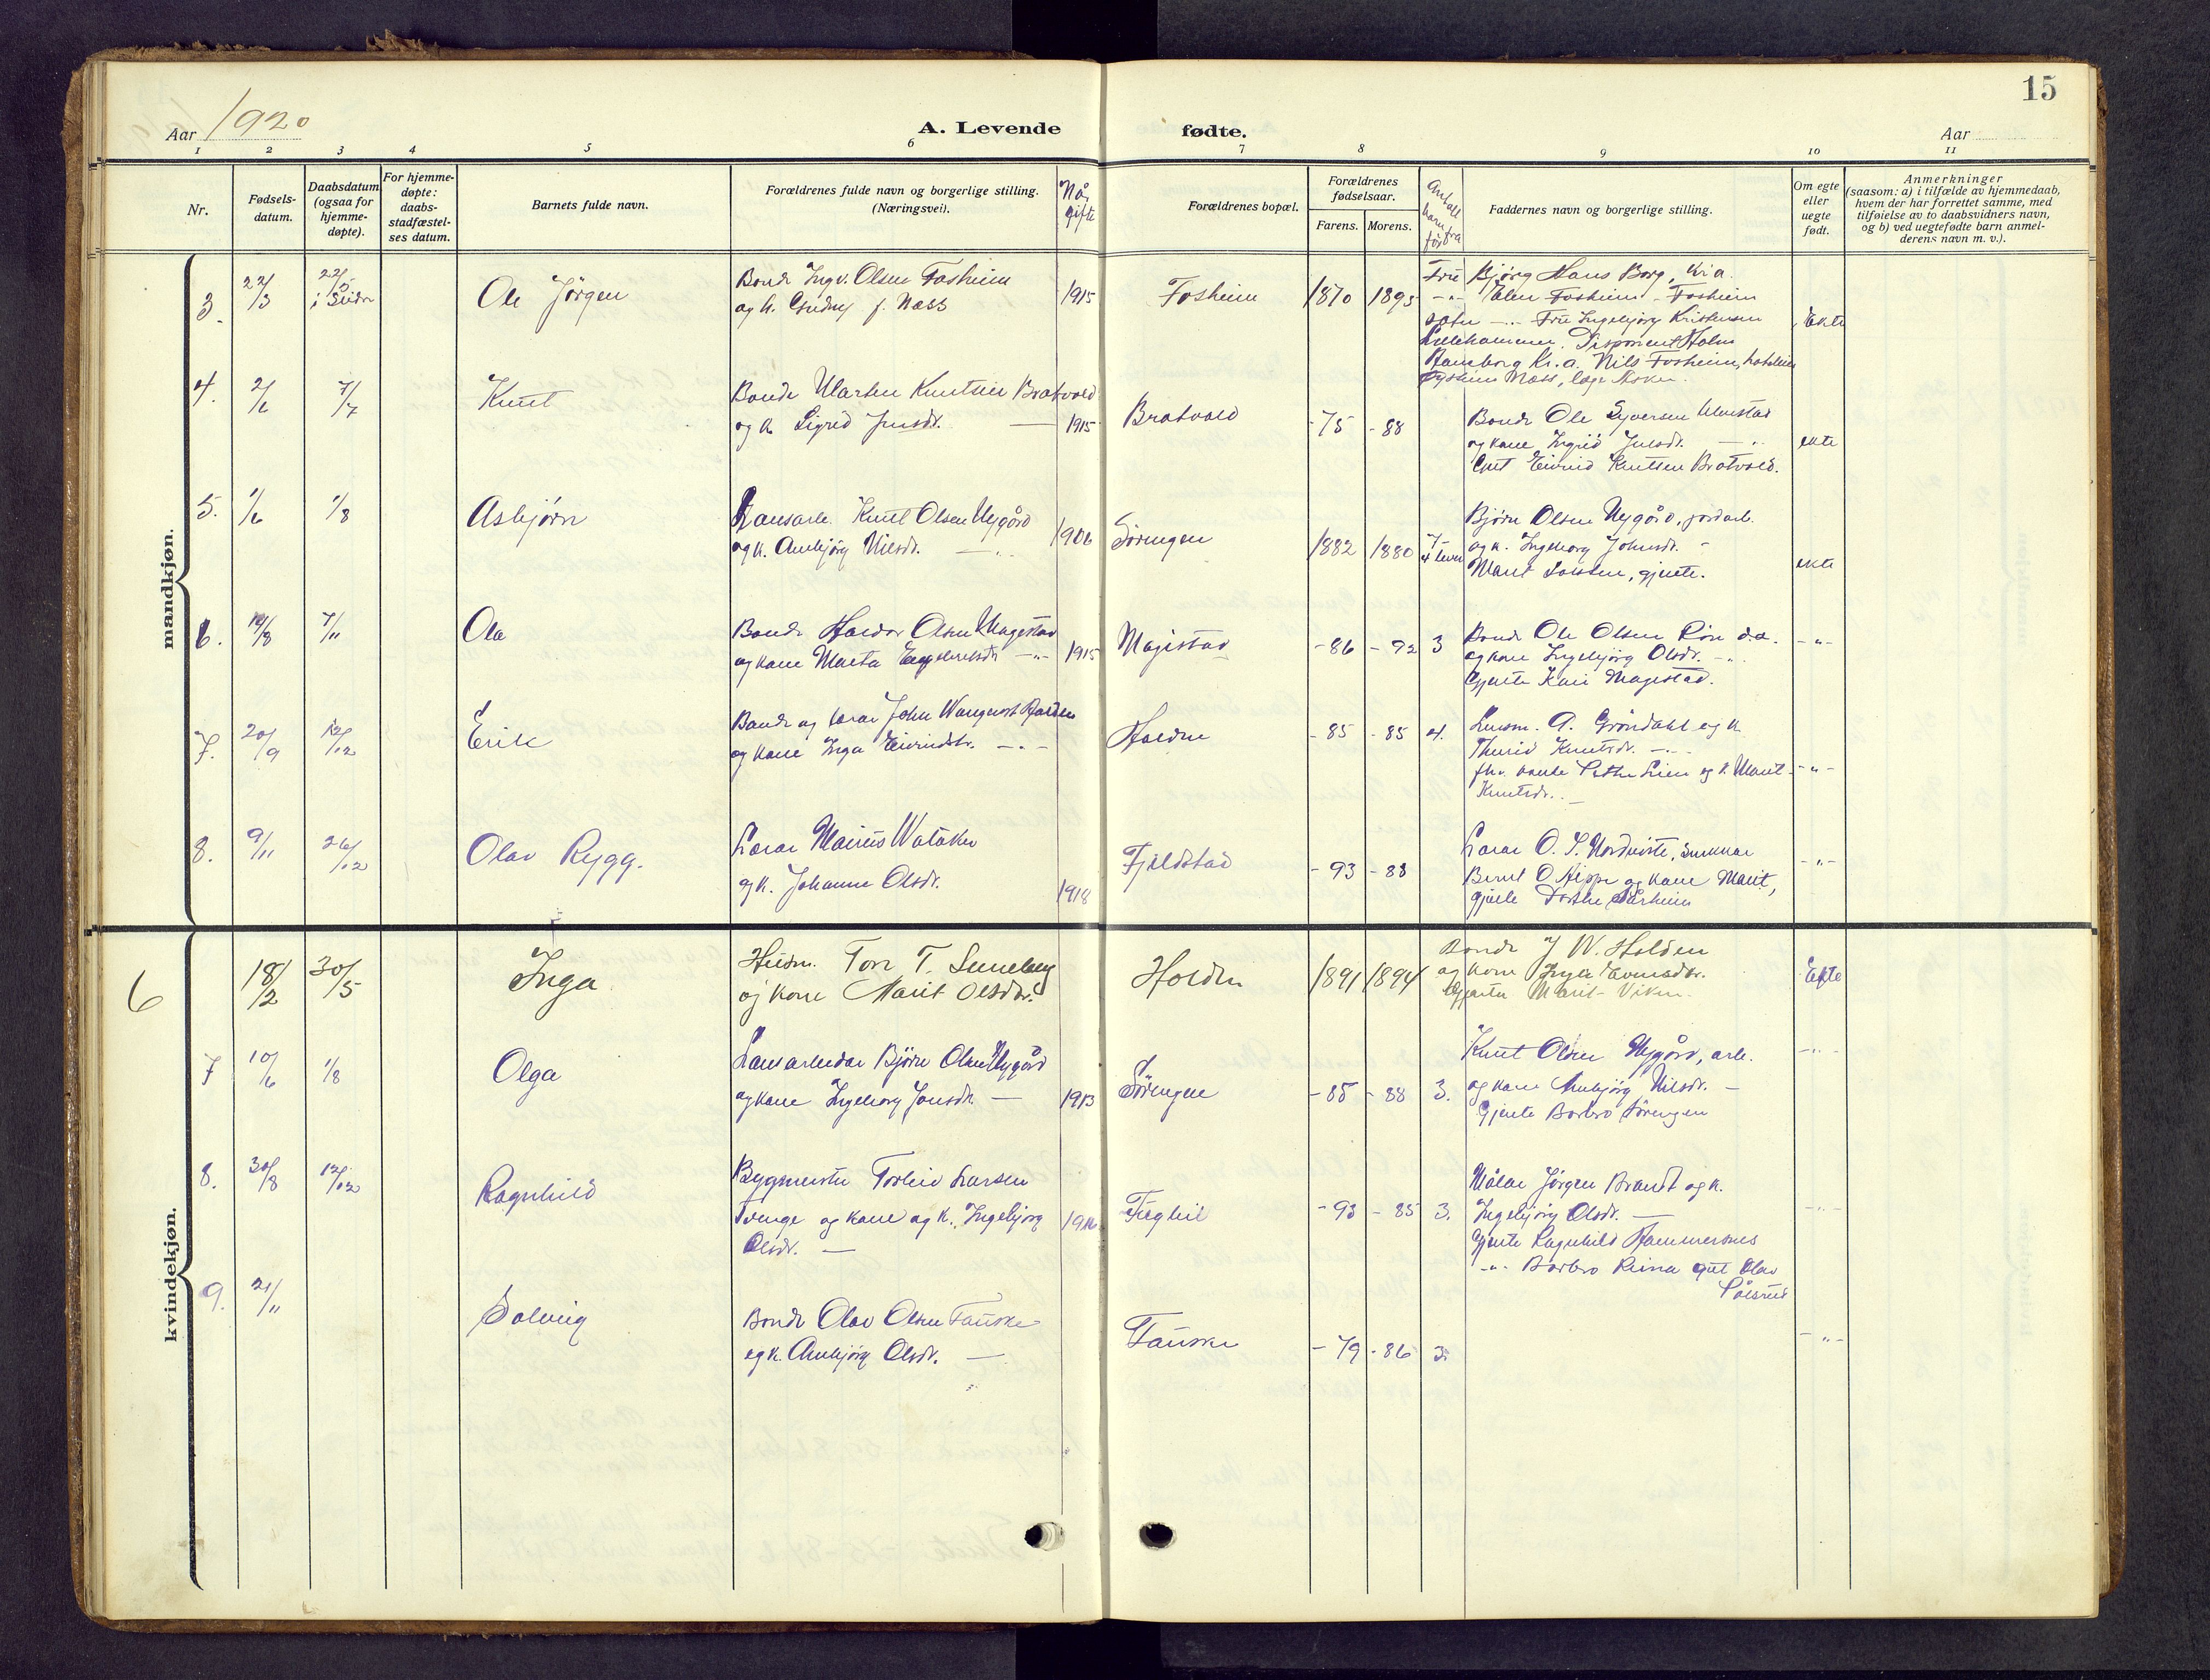 15
Aar 1920
A. Levende
fødte.
Aar
1 2 3 4 5 6 7 8 9 10 11
Nr.
Fødsels-
datum.
Daabsdatum
(ogsaa for
hjemme-
døpte).
For hjemme-
døpte:
daabs-
stadfæstel-
ses datum.
Barnets fulde navn.
Forældrenes fulde navn og borgerlige stilling.
(Næringsvei).
Når
gifte
Forældrenes bopæl.
Forældrenes
fødselsaar.
Farens. Morens.
Antall
barn fra
før
Faddernes navn og borgerlige stilling.
Om egte
eller
uegte
født.
Anmerkninger
(saasom: a) i tilfælde av hjemmedaab,
hvem der har forrettet samme, med
tilføielse av to daabsvidners navn,
og b) ved uegtefødte barn anmel-
derens navn m. v.).
mandkjøn.
3. 22/3 22/5 i Slidr Ole Jörgen
Bonde Ingv. Olsen Fosheim
og k. Gudny f. Næss 1915
Fosheim 1870 1893
Frü Bjørg Hans Borg, Kr.a.
-"- Elen Fosheim - Fosheim
sæter -"- Frü Ingebjörg Kristensen
Lillehammer. Disponent Holm
Kr.a. Nils Fosheim,
Næss, læge Asker.
Ekte
4. 2/6 7/7 Knut
Bonde Marten Knutsen Bratvold
og k. Sigrid Jensdr. — 1915
Bratvold - 75 - 88
Bonde Ole Syversen Ulvestad
og kone Ingrid Julsdr. —"—
Gut Eivind Knutsen Bratvold.
ekte
5. 1/6 1/8 Asbjørn
Lausarb. Knut Olsen Nygård
og k. Anbjörg Nilsdr. —"— 1906
Sörengen 1882 1880 7- 4 lever
Bjørn Olsen Nygård, jordarb.
og k. Ingeborg Johnsdr. -
Marit , gjente.
ekte
6. 19/8 7/11 Ola
Bonde Haldor Olsen Magestad
og kone Marta Engebretsdr -"- 1915
Magistad - 86 - 92 3
Bonde Ole Olsen Rön d.a.
og kone Ingebjörg Olsdr. -"-
Gjente Kari Magestad.
-"-
7. 20/9 12/12 Erik
Bonde og lærar John Wangenst Holden
og kone Inga Eivindsdr. -"-
Holden - 85 - 85 4.
Lensm. A. Gröndahl og k.
Thurid Knutsdr. -"-
fhv. kande Lien og k. Marit
Knutsdr. —
-"-
8. 9/11 26/12 Olav Rygg.
Lærar Marius Wataker
og k. Johanne Olsdr. 1918
Fjeldstad - 93 - 88
Lærar O. S. Nordtveite, snikkar
Bernt O. Neppe og kone Marit,
gjente Dorthe
-"-
kvindekjøn.
6 18/2 30/5 Inga
Husm. Tore T. Luneberg
og kone Marit Olsdtr.
Holden 1891 1894
Bonde J W. Holden
og kone Inga Evensdtr.
Gjenten Marit Viken.
Ekte
7 10/6 1/8 Olga
Lausarbeidar Bjørn Olsen Nygård
og kone Ingeborg Jonsdr. — 1913
Sörengen - 85 - 88 3.
Knut Olsen Nygård, arb.
og kone Anbjörg Nilsdr. —
Gjente Barbro Sörengen
-"-
8. 30/8 12/12 Ragnhild
Bygmester Torleiv Larsen
Tvenge og kone og k. Ingebjörg
Olsdr. —
Füglil - 93 - 85 3.
Målar Jörgen Brandt og k.
Ingebjörg Olsdr. —
Gjente Ragnhild Hammersnes
-"- Barbro Reina gut Olav
-"-
9. 21/11 Solveig
Bonde Olav Olsen Fauske
og k. Anbjörg Olsdr. —
Fauske - 79 - 86 3
-"-